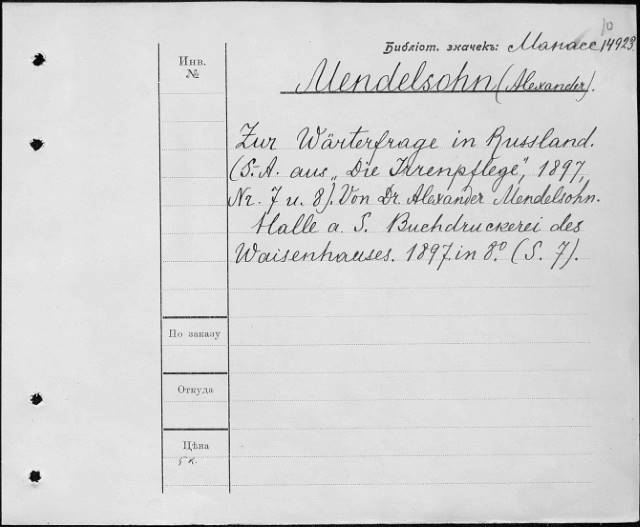 10
Библіот. значекъ: Манасс 14923
Инв.
№
Mendelsohn (Alexander).
Zur Wärterfrage in Russland.
(S.-A. aus „Die Irrenpflege", 1897,
Nr. 7 u. 8). Von Dr. Alexander Mendelsohn.
Halle a. S. Buchdruckerei des
Waisenhauses. 1897. in 8.° (S. 7).
По заказу
Откуда
Цѣна
5 к.